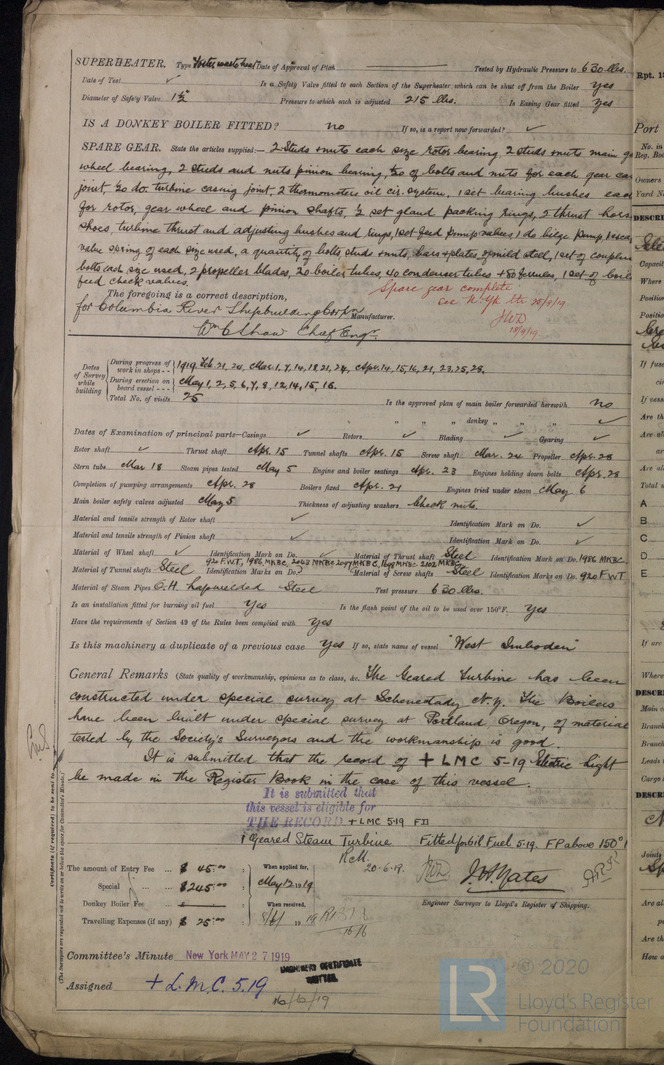 SUPERHEATER. Type Foster waste heat Date of Approval of Plan Tested by Hydraulic Pressure to 630 lbs.
Date of Test ✓ Is a Safety Valve fitted to each Section of the Superheater which can be shut off from the Boiler Yes
Diameter of Safety Valve 1½" Pressure to which each is adjusted 215 lbs. Is Easing Gear fitted Yes
IS A DONKEY BOILER FITTED? no If so, is a report now forwarded? ✓
SPARE GEAR. State the articles supplied:— 2 studs + nuts each size rotor bearing, 2 studs + nuts main ge
wheel bearing, 2 studs and nuts pinion bearing, 1/20 of bolts and nuts for each gear case
joint, 1/20 do. turbine casing joint, 2 thermometers oil cir. system, 1 set bearing bushes each
for rotor, gear wheel and pinion shafts, ½ set gland packing rings, 2 thrust horse
shoes, turbine thrust and adjusting bushes and rings, 1 set feed pump valves, 1 do bilge pump, 1 escape
valve spring of each size used, a quantity of bolts studs + nuts, bars + plates of mild steel, 1 set of coupling
bolts each size used, 2 propeller blades, 20 boiler tubes, 40 condenser tubes + 80 ferrules, 1 set of boiler
feed check valves.
Spare gear complete
see N.Yk ltr 25/8/19
JWD
The foregoing is a correct description,
for Columbia River Shipbuilding Corpn Manufacturer.
Wm C Shaw Chief Engr.
Dates of Survey while building
During progress of work in shops - - 1919. Feb. 21, 24, Mar. 1, 7, 14, 18, 21, 24, Apr. 14, 15, 16, 21, 23, 25, 28.
During erection on board vessel - - - May 1, 2, 5, 6, 7, 8, 12, 14, 15, 16.
Total No. of visits 25
Is the approved plan of main boiler forwarded herewith no
" " " donkey " " " ✓
Dates of Examination of principal parts—Casings ✓ Rotors ✓ Blading ✓ Gearing ✓
Rotor shaft ✓ Thrust shaft Apr. 15 Tunnel shafts Apr. 15 Screw shaft Mar. 24 Propeller Apr. 28
Stern tube Mar 18 Steam pipes tested May 5 Engine and boiler seatings Apr. 23 Engines holding down bolts Apr. 28
Completion of pumping arrangements Apr. 28 Boilers fixed Apr. 21 Engines tried under steam May 6
Main boiler safety valves adjusted May 5 Thickness of adjusting washers Check nuts.
Material and tensile strength of Rotor shaft ✓ Identification Mark on Do. ✓
Material and tensile strength of Pinion shaft ✓ Identification Mark on Do. ✓
Material of Wheel shaft ✓ Identification Mark on Do. ✓ Material of Thrust shaft Steel Identification Mark on Do. 1986 MKBC.
Material of Tunnel shafts Steel Identification Marks on Do. Material of Screw shafts Steel Identification Marks on Do. 920 FWT
Material of Steam Pipes O.H. lapwelded Steel Test pressure 630 lbs.
Is an installation fitted for burning oil fuel Yes Is the flash point of the oil to be used over 150°F. Yes
Have the requirements of Section 49 of the Rules been complied with Yes
Is this machinery a duplicate of a previous case Yes If so, state name of vessel "West Imboden"
General Remarks (State quality of workmanship, opinions as to class, &c. The Geared Turbine has been
constructed under special survey at Schenectady N.Y. The Boilers
have been built under special survey at Portland Oregon, of material
tested by the Society's Surveyors and the workmanship is good.
It is submitted that the record of + LMC 5-19 Electric light
be made in the Register Book in the case of this vessel.
It is submitted that
this vessel is eligible for
THE RECORD + LMC 5.19 FD
1 Geared Steam Turbine Fitted for oil Fuel 5.19. FP above 150°
20.6.19. JWD
The amount of Entry Fee ... $ 45.00
Special ... $ 245.00
Donkey Boiler Fee ...
Travelling Expenses (if any) $ 25.00
When applied for, May 12 1919
When received,
J.A. Yates
Engineer Surveyor to Lloyd's Register of Shipping.
Committee's Minute New York MAY 27 1919
Assigned + L.M.C. 5.19
MACHINERY CERTIFICATE
WRITTEN
© 2020
LR
Lloyd's Register
Foundation